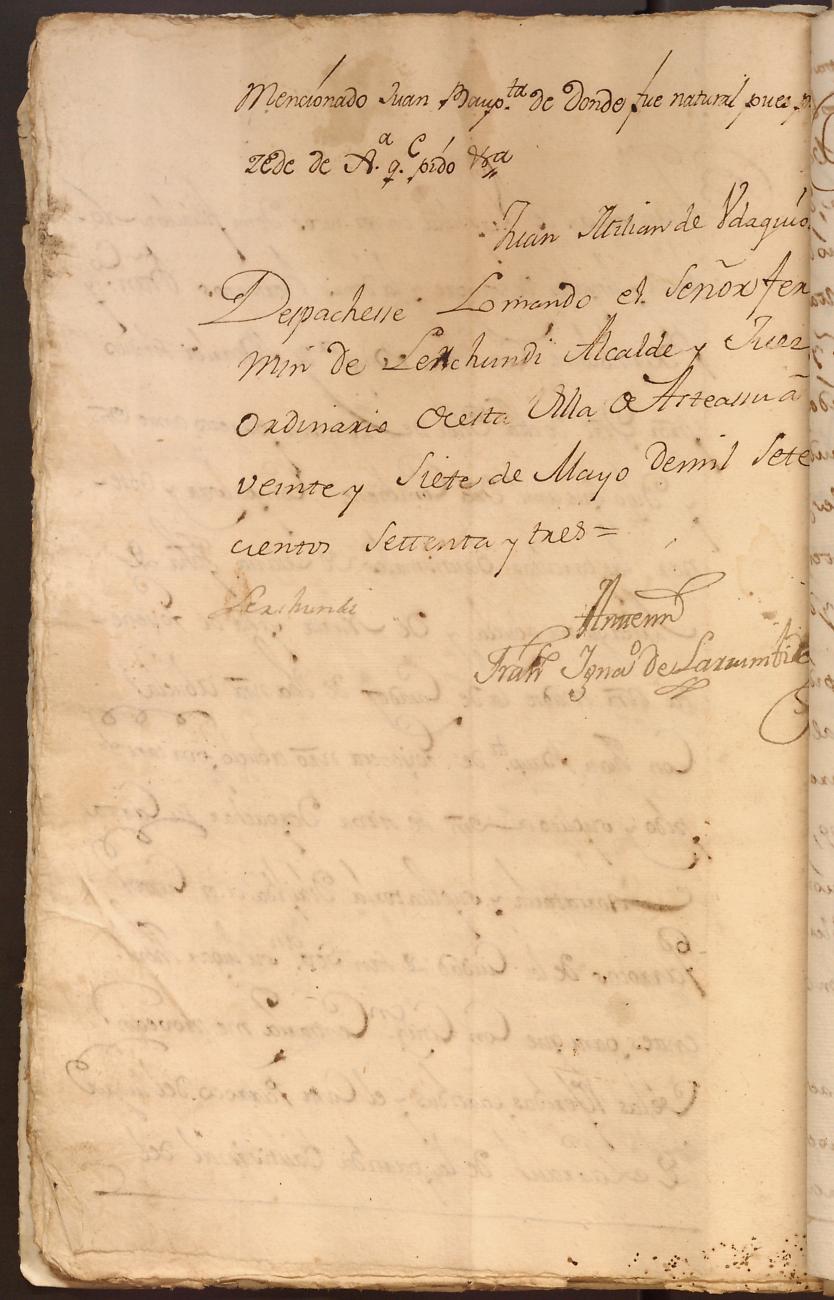 Mencionado Juan Baup.ta de donde fue natural pues p.
zede de A.a q.e pido &a
Juan Milian de Vdaquio
Despachesse Lo mando el Señor fer
min de Lerchundi Alcalde y Juez
ordinario de esta Villa de Asteassu a
veinte y siete de Mayo de mil sete
cientos settenta y tres =
Lerchundi
Antemi
Fran Igna.o de Larrumbide